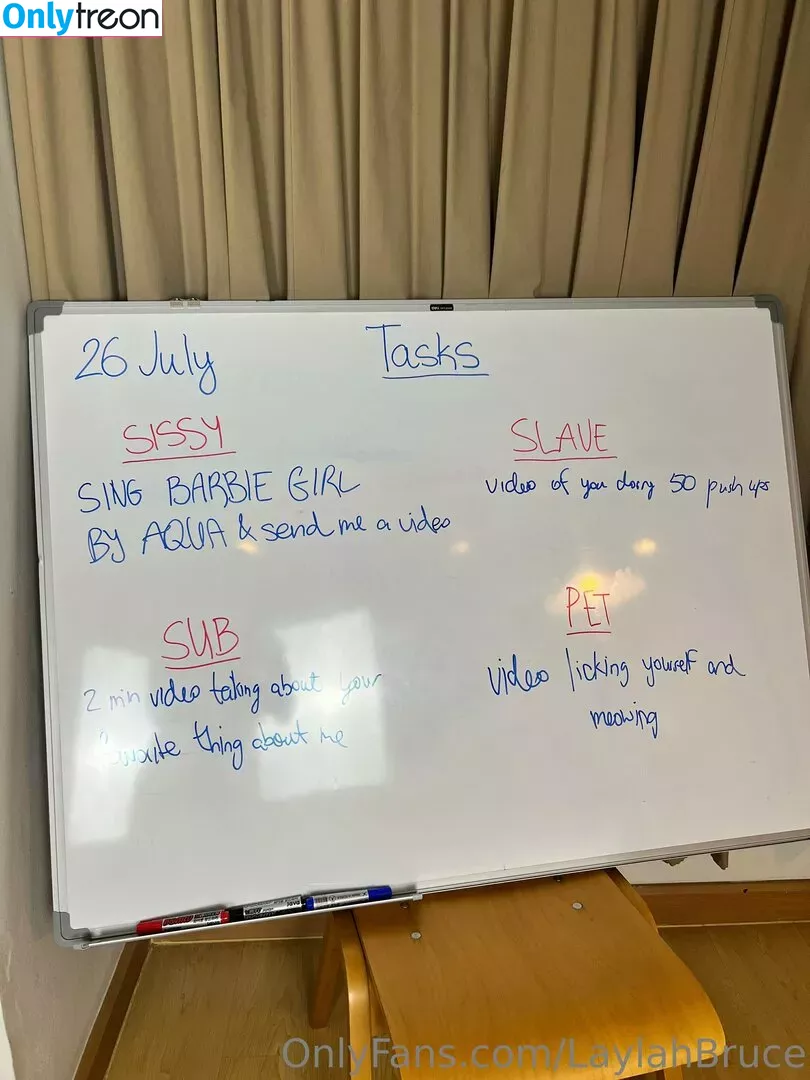 Onlytreon
26 July
Tasks
SISSY
SING BARBIE GIRL
BY AQUA & send me a video
SLAVE
video of you doing 50 push ups
SUB
2 min video talking about your
favourite thing about me
PET
video licking yourself and
meowing
OnlyFans.com/LaylahBruce